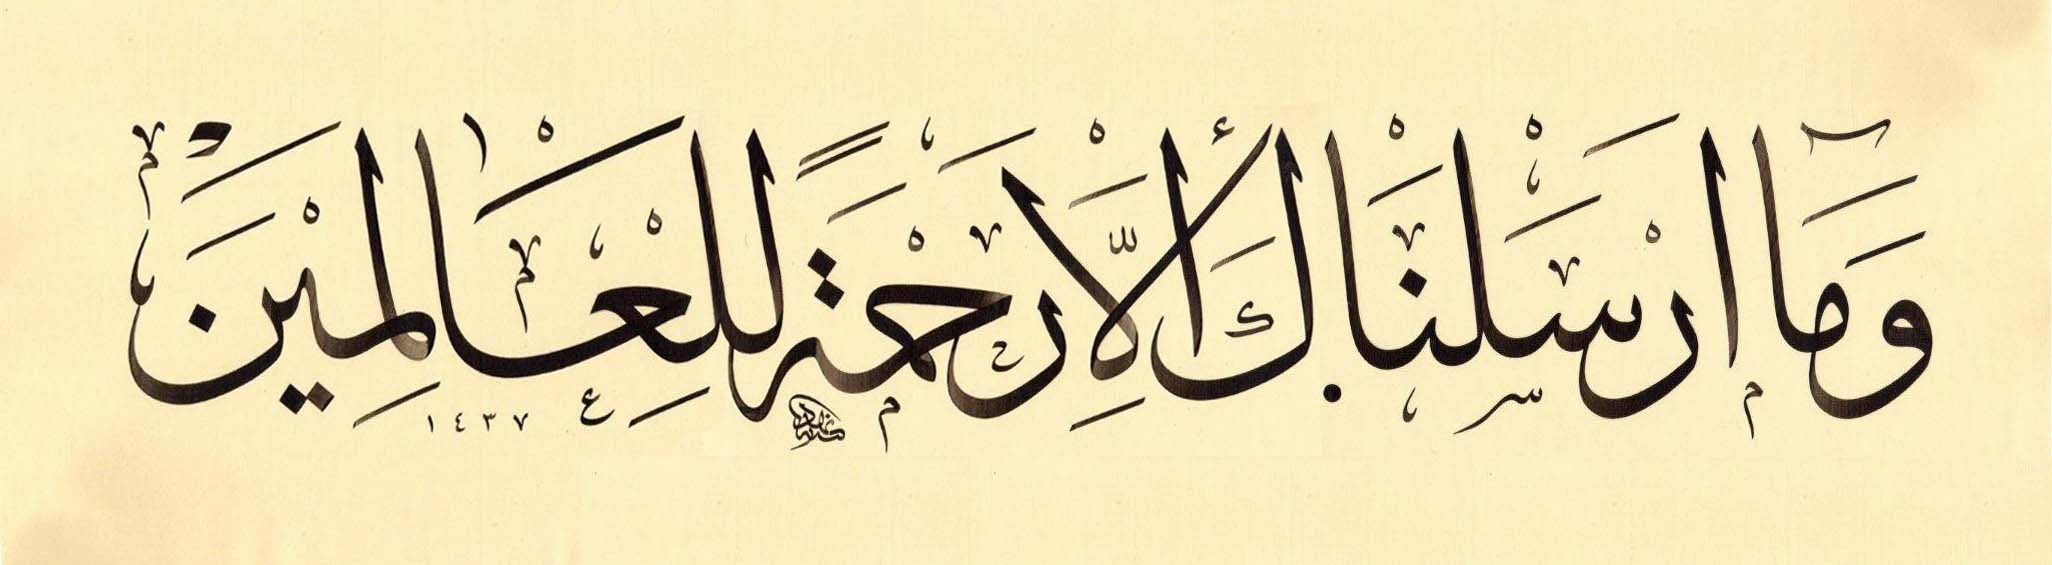 وَمَآ اَرْسَلْنَاكَ اِلَّا رَحْمَةً لِلْعَالَمِيْنَ
١٤٣٧